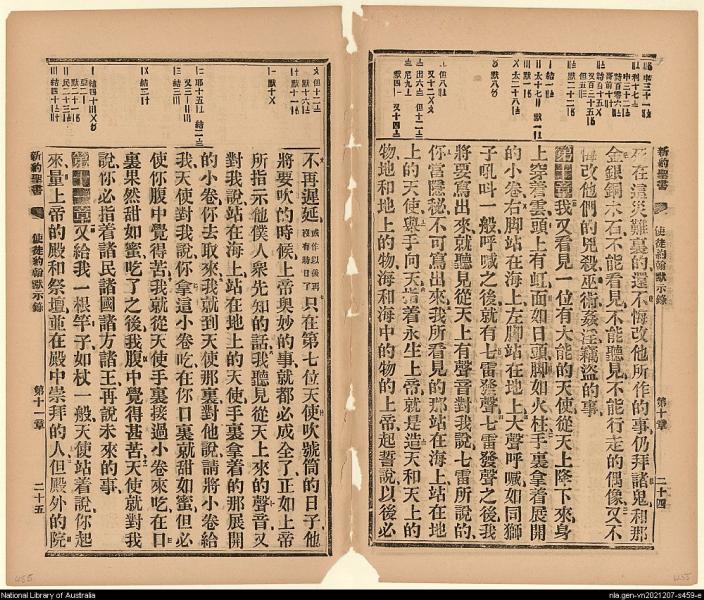 新約聖書
使徒約翰默示錄
第十章
二十四
死在這災難裏的還不悔改他所作的事仍拜諸鬼和那
金銀銅木石不能看見不能聽見不能行走的偶像又不
悔改他們的兇殺巫術姦淫竊盜的事
第十章我又看見一位有大能的天使從天上降下來身
上穿着雲頭上有虹面如日頭脚如火柱手裏拿着展開
的小卷右脚站在海上左脚站在地上大聲呼喊如同獅
子吼叫一般呼喊之後就有七雷發聲七雷發聲之後我
將要寫出來就聽見從天上有聲音對我說七雷所說的
你當隱秘不可寫出來我所看見的那站在海上站在地
上的天使舉手向天指着永生上帝就是造天和天上的
物地和地上的物海和海中的物的上帝起誓說以後必
不再遲延或作以後再沒有時日了只在第七位天使吹號筒的日子他
將要吹的時候上帝奧妙的事就都必成全了正如上帝
所指示他僕人衆先知的話我聽見從天上來的聲音又
對我說站在海上站在地上的天使手裏拿着的那展開
的小卷你去取來我就到天使那裏對他說請將小卷給
我天使對我說你拿這小卷吃在你口裏就甜如蜜但必
使你腹中覺得苦我就從天使手裏接過小卷來吃在口
裏果然甜如蜜吃了之後我腹中覺得甚苦天使就對我
說你必指着諸民諸國諸方諸王再說未來的事
第十一章又給我一根竿子如杖一般天使站着說你起
來量上帝的殿和祭壇並在殿中崇拜的人但殿外的院
新約聖書
使徒約翰默示錄
第十一章
二十五
National Library of Australia
nla.gen-vn2021207-s459-e